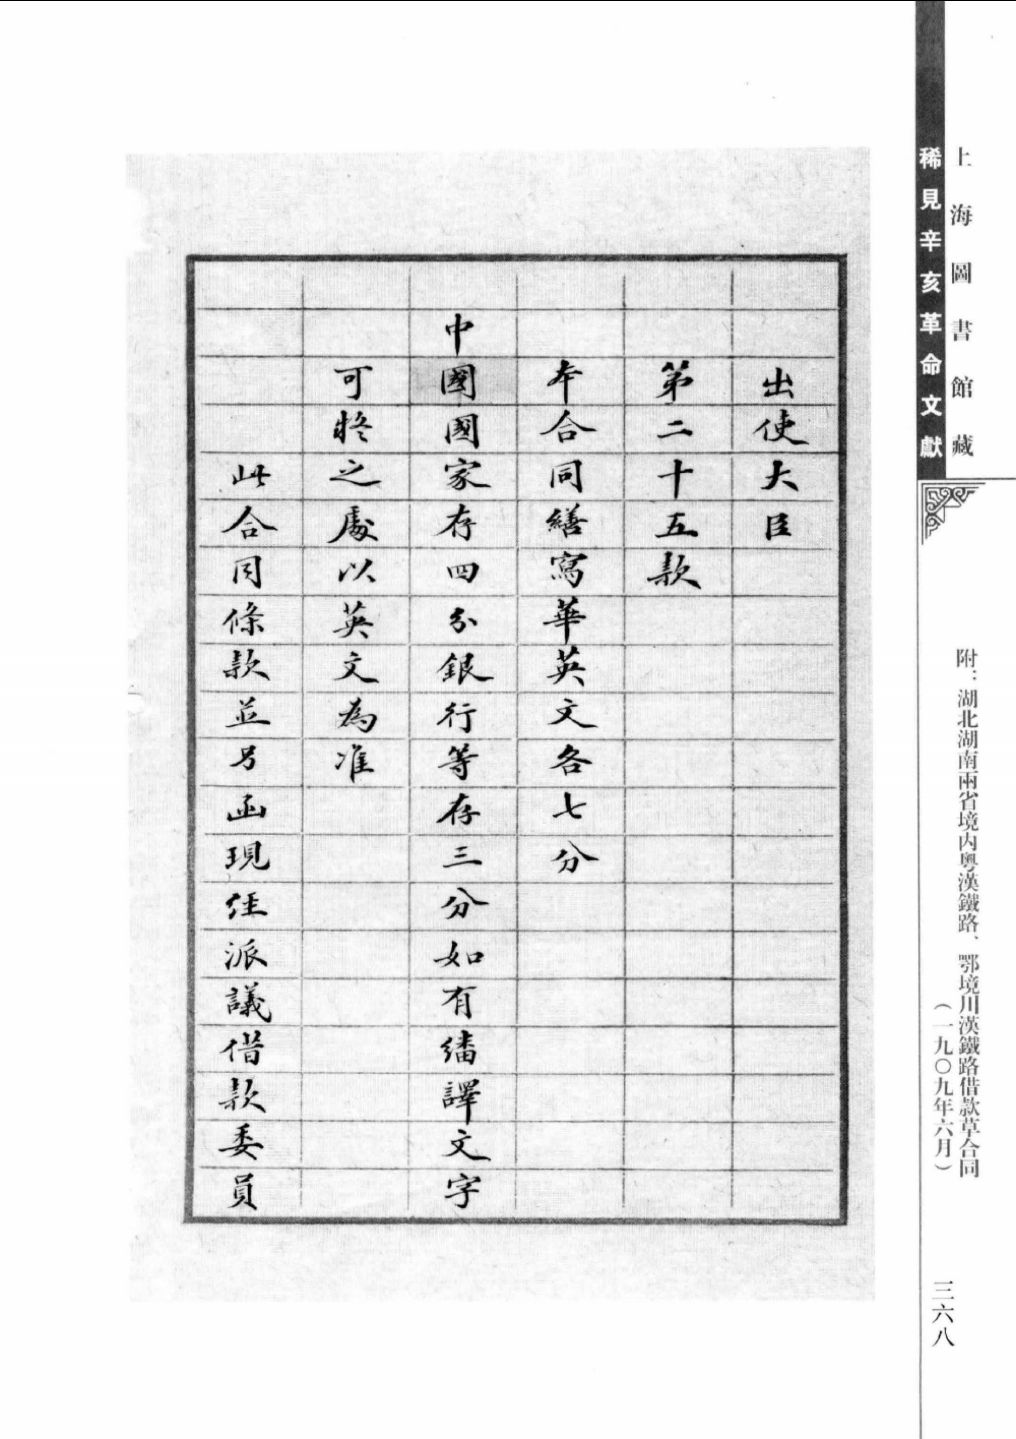 上海圖書館藏
稀見辛亥革命文獻
附：湖北湖南兩省境内粤漢鐵路、鄂境川漢鐵路借款草合同
（一九〇九年六月）
三六八
出使大臣
第二十五款
本合同繕寫華英文各七分
中國國家存四分銀行等存三分如有繙譯文字
可疑之處以英文為准
此合同條款並另函現經派議借款委員